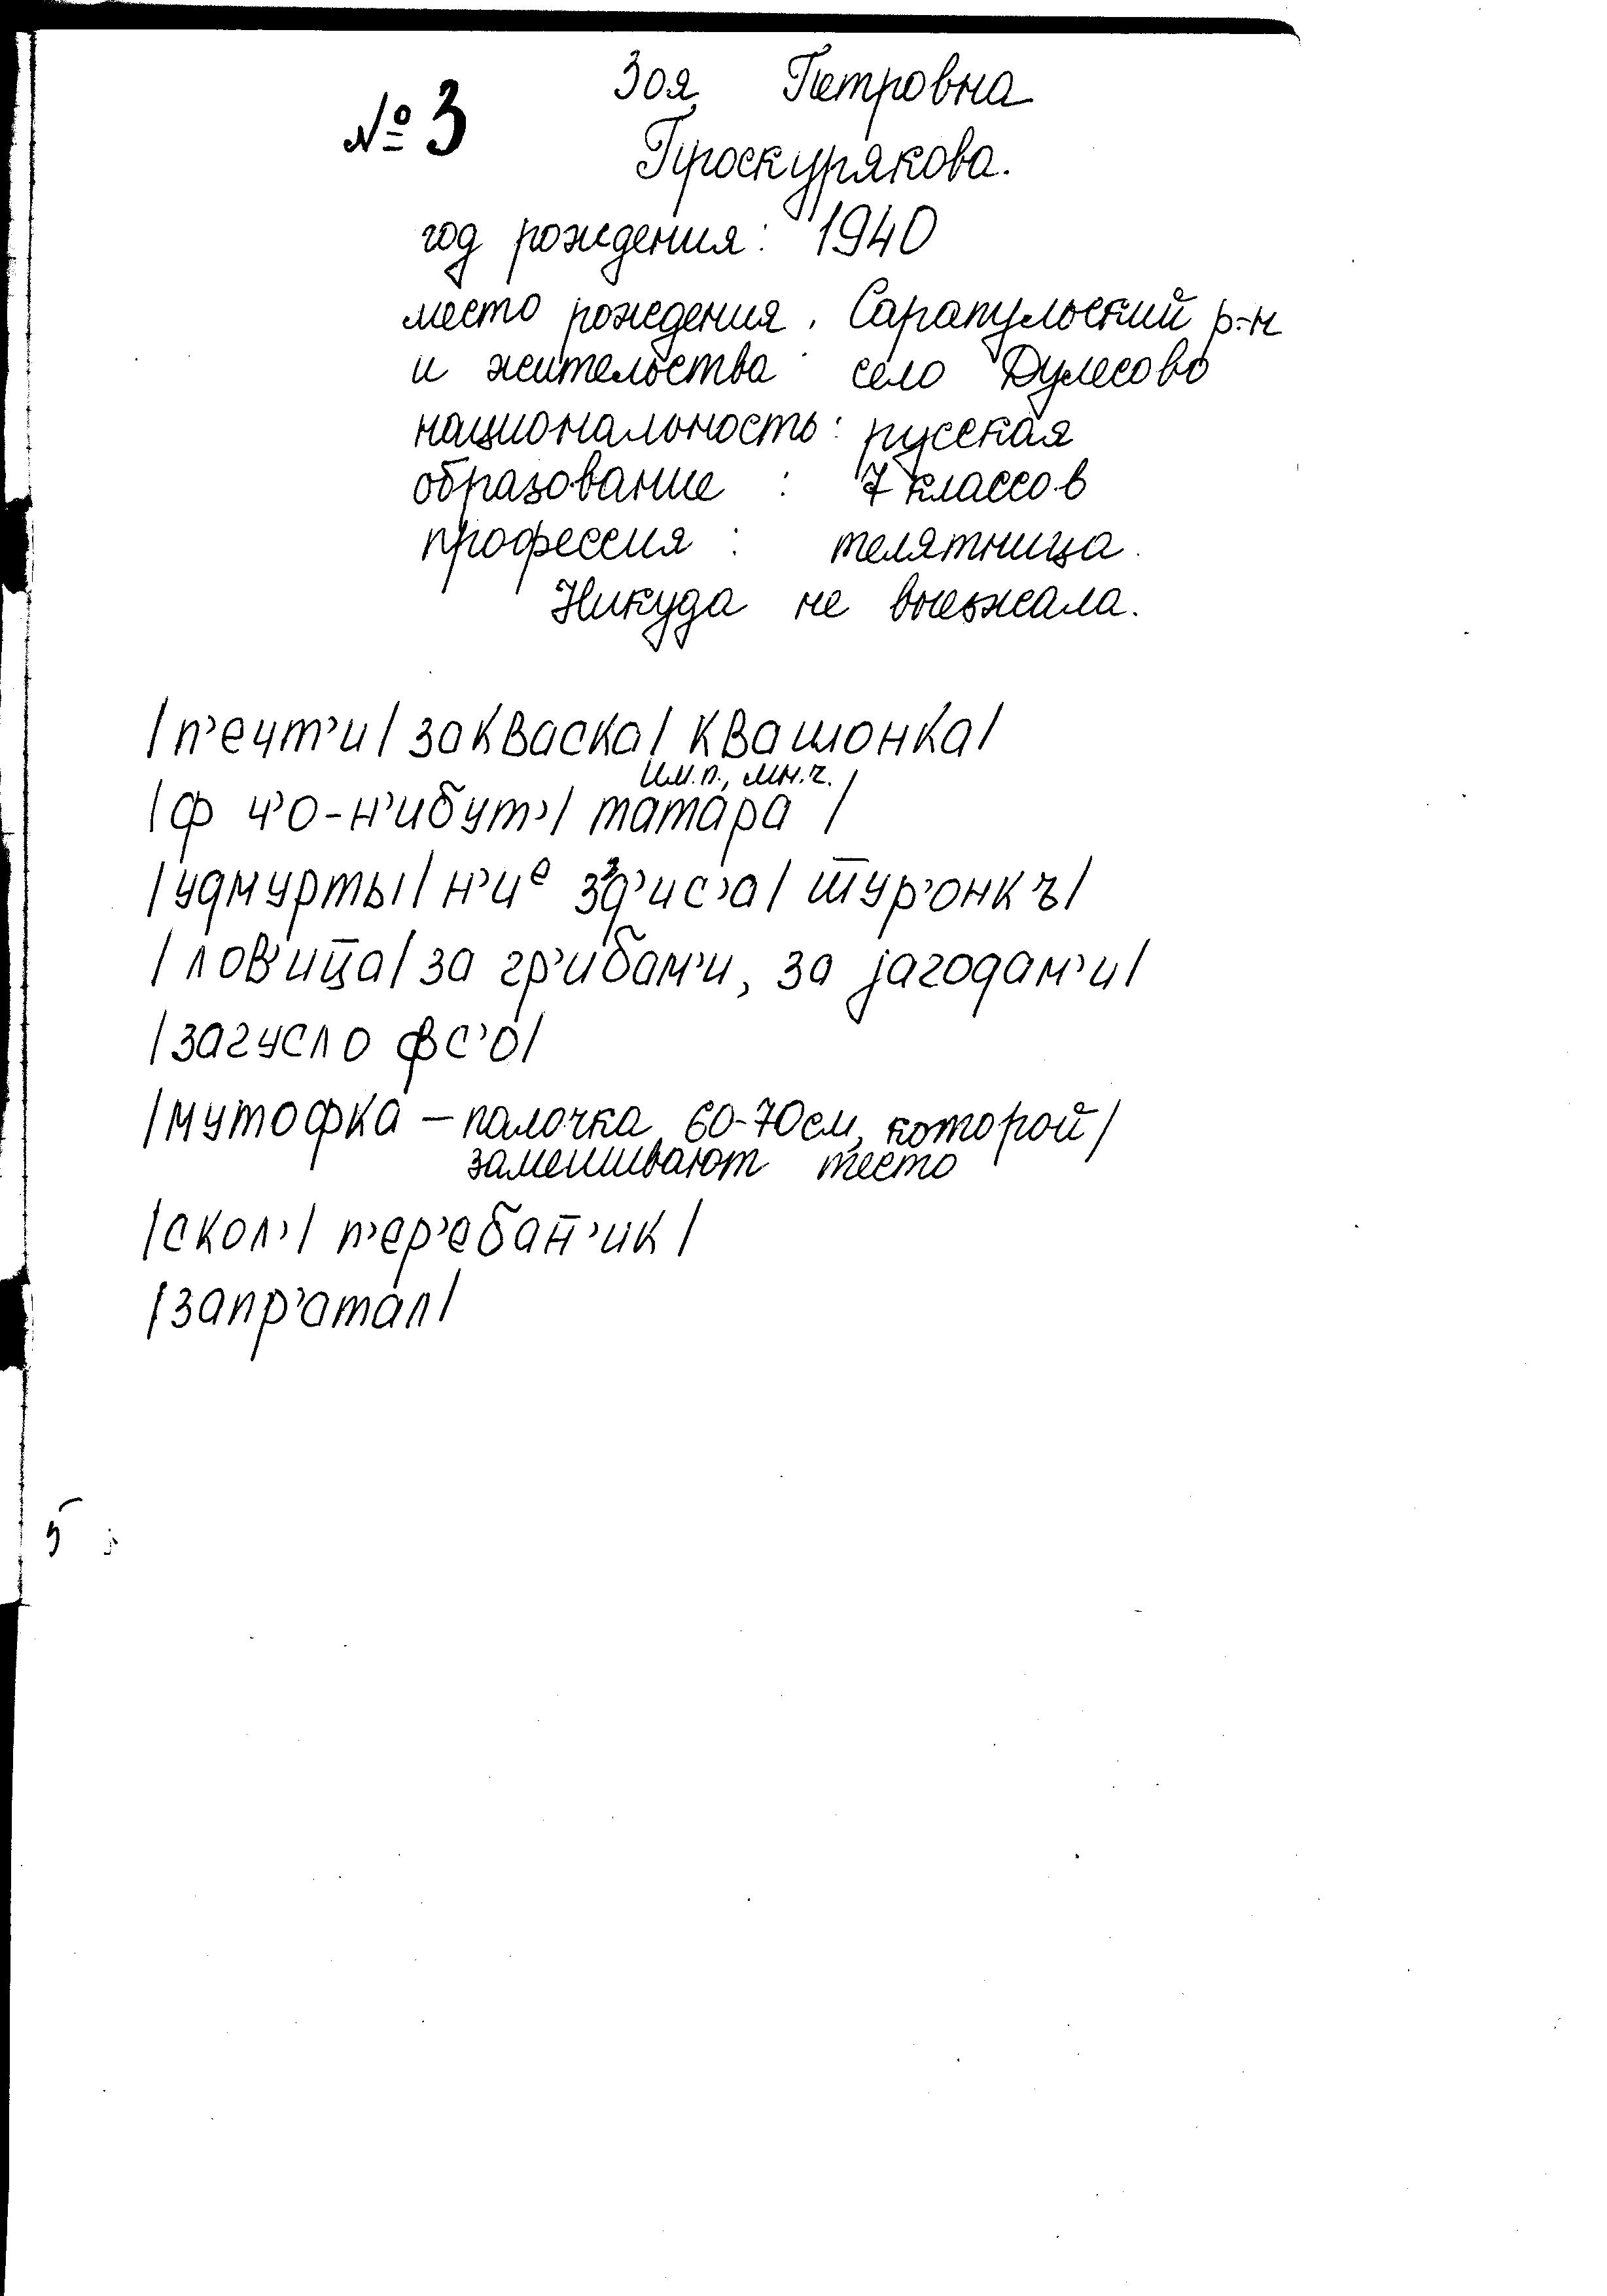 Зоя Петровна
№ 3
Проскурякова.
год рождения: 1940
место рождения : Сарапульский р-н
и жительства село Дулесово
национальность: русская
образование : 7 классов
профессия : телятница.
Никуда не выезжала.
/п’ечт’и/ закваска/ квашонка/
им.п., мн.ч.
/ф ч’о-н’ибут’/ татара /
/удмурты/ н’иᵉ з’д’ис’а/ ш̅ур’онкъ/
/лов’иц̅а/ за гр’ибам’и, за jагодам’и/
/загусло фс’о/
/мутофка – палочка 60-70см, которой/
замешивают тесто
/скол’/ п’ер’ебан̅’ик/
/запр’атал/
5